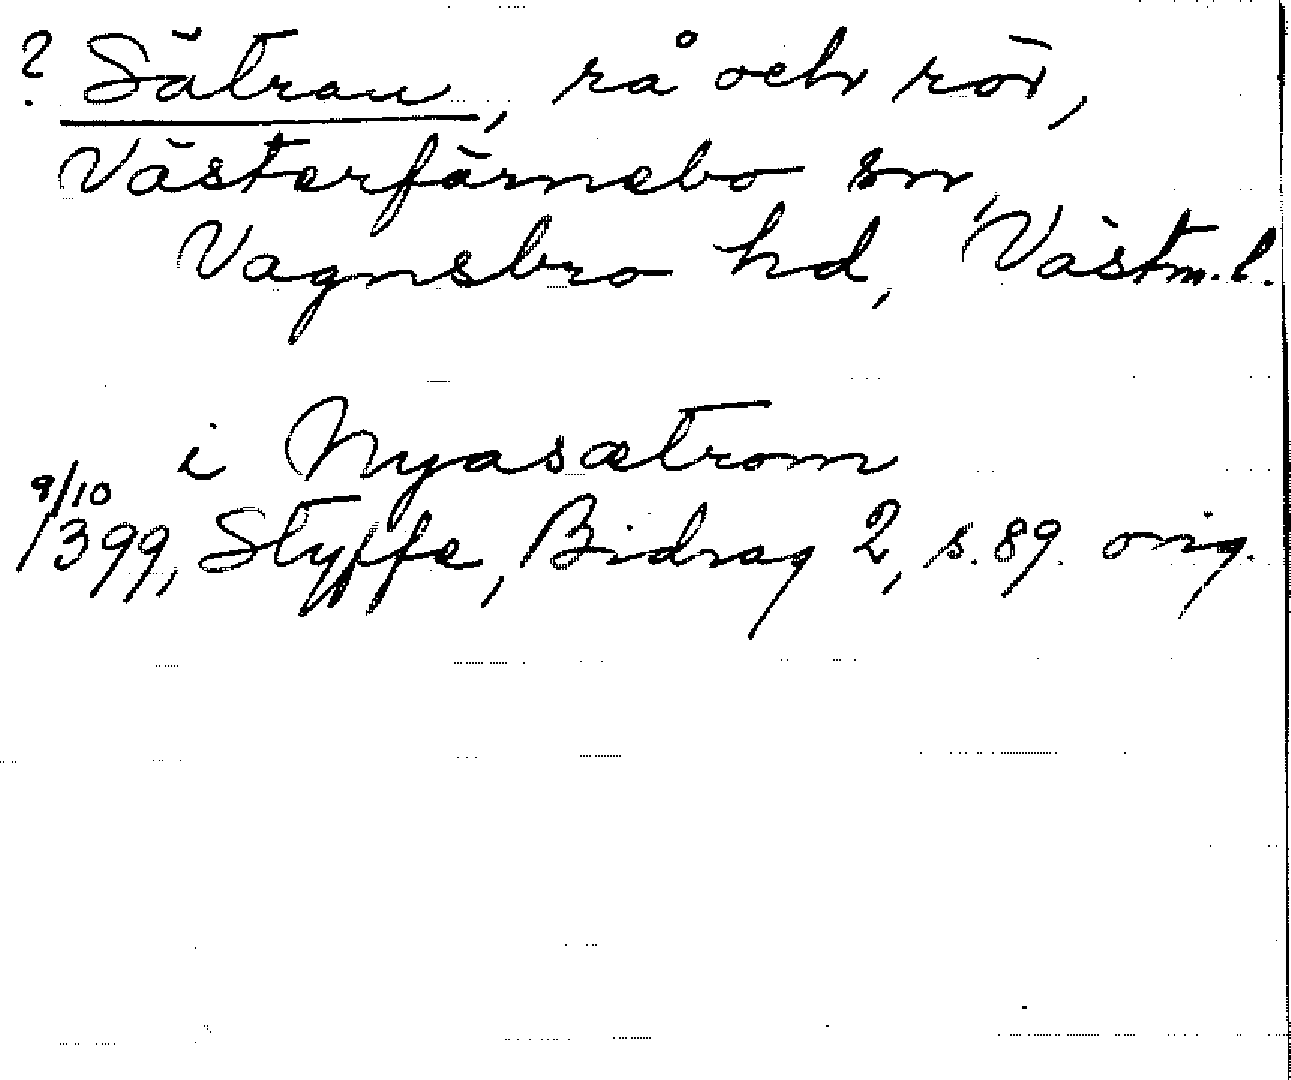 ? Sätran, rå och rör,
Västerfärnebo sn,
Vagnsbro hd, Västm.l.
i Nyasætrom
9/10
1399, Styffe, Bidrag 2, s. 89. orig.